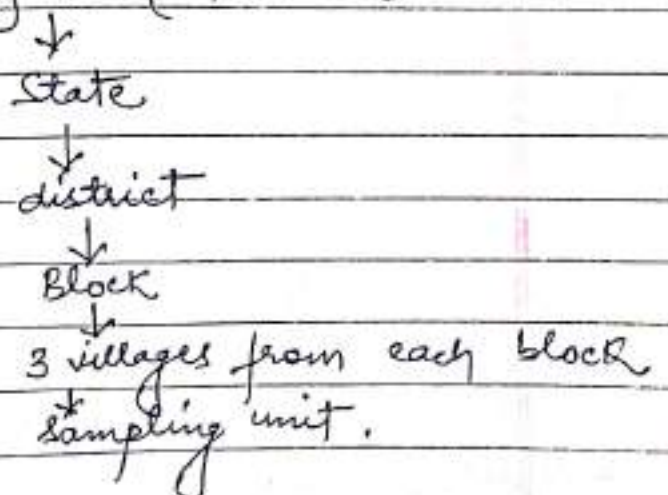 ↓
State
↓
district
↓
Block
↓
3 villages from each block
↓
sampling unit.